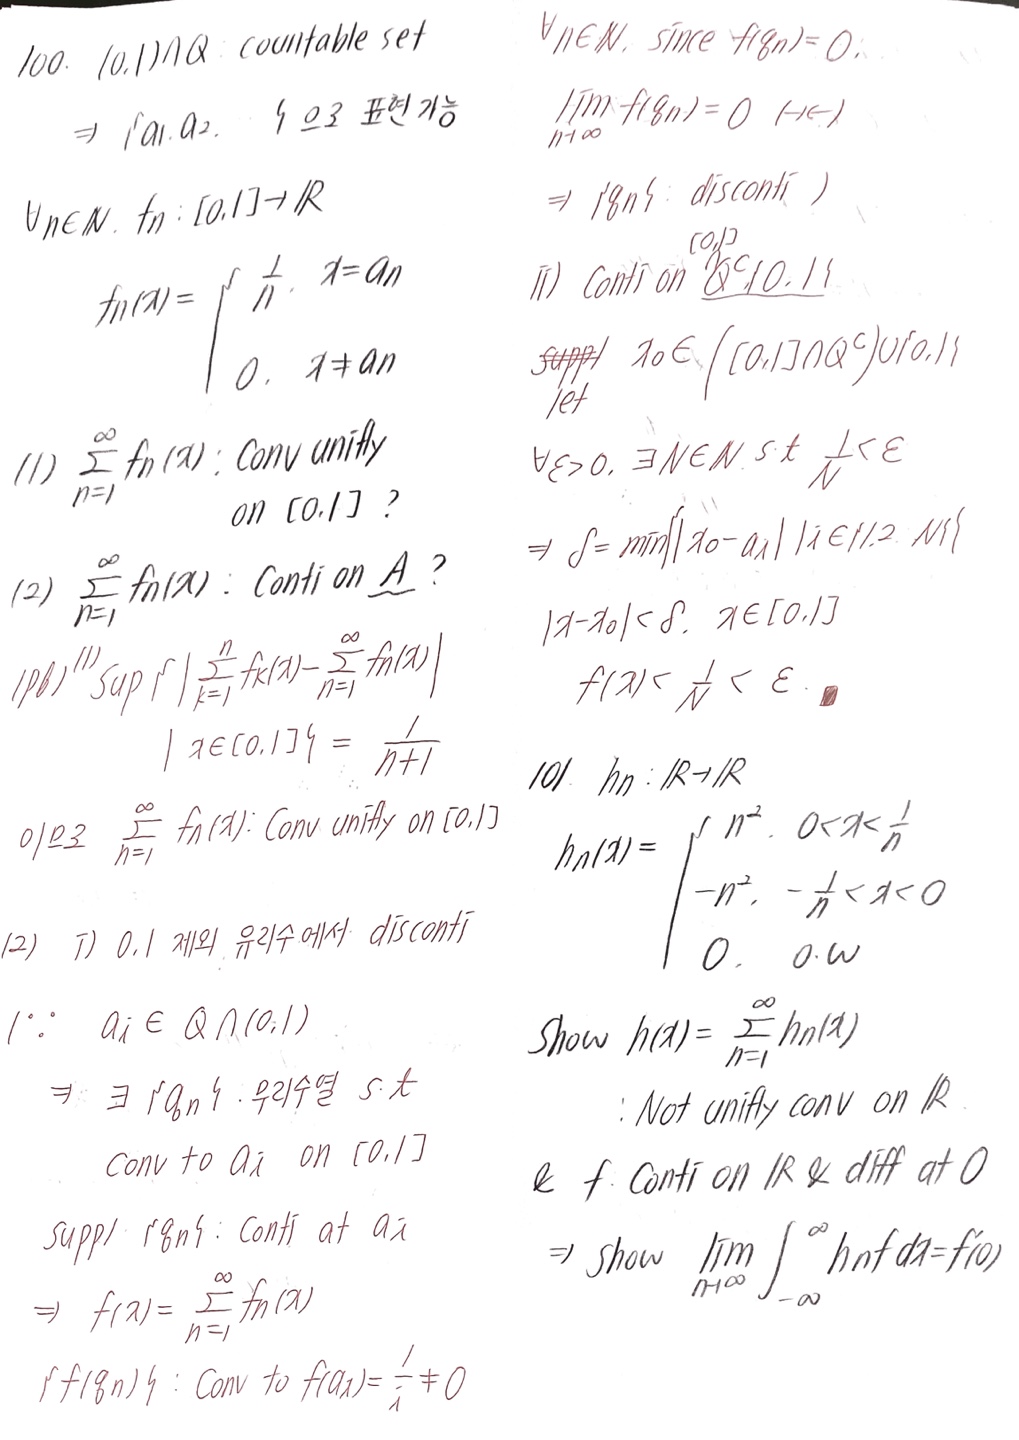 100. (0,1)∩Q : countable set
⇒ {a1, a2, } 으로 표현가능
∀n∈N. fn : [0,1]→R
fn(x) = { 1/n. x=an
0. x≠an
(1) ∑_{n=1}^{∞} fn(x) : Conv unifly
on [0,1] ?
(2) ∑_{n=1}^{∞} fn(x) : Conti on A ?
(pf) (1) sup { | ∑_{k=1}^{n} fk(x) - ∑_{n=1}^{∞} fn(x) |
| x∈[0,1] } = 1/(n+1)
이므로 ∑_{n=1}^{∞} fn(x) : Conv unifly on [0,1]
(2) i) 0,1 제외 유리수에서 disconti
(∵ ai ∈ Q∩(0,1)
⇒ ∃ {qn} . 무리수열 s.t
conv to ai on [0,1]
supp) {qn} : Conti at ai
⇒ f(x) = ∑_{n=1}^{∞} fn(x)
{f(qn)} : Conv to f(ai) = 1/i ≠ 0
∀n∈N. since f(qn) = 0.
lim_{n→∞} f(qn) = 0 (→←)
⇒ {qn} : disconti )
[0,1]
ii) Conti on Q^c, {0,1}
let x0 ∈ ([0,1]∩Q^c)∪{0,1}
∀ε>0. ∃N∈N. s.t 1/N < ε
⇒ δ = min{|x0-ai| | i∈{1,2 N}}
|x-x0|<δ. x∈[0,1]
f(x) < 1/N < ε. ■
101. hn : R→R
hn(x) = { n². 0<x<1/n
-n². -1/n<x<0
0. o.w
Show h(x) = ∑_{n=1}^{∞} hn(x)
: Not unifly conv on R
& f. Conti on R & diff at 0
⇒ show lim_{n→∞} ∫_{-∞}^{∞} hnf dx = f'(0)